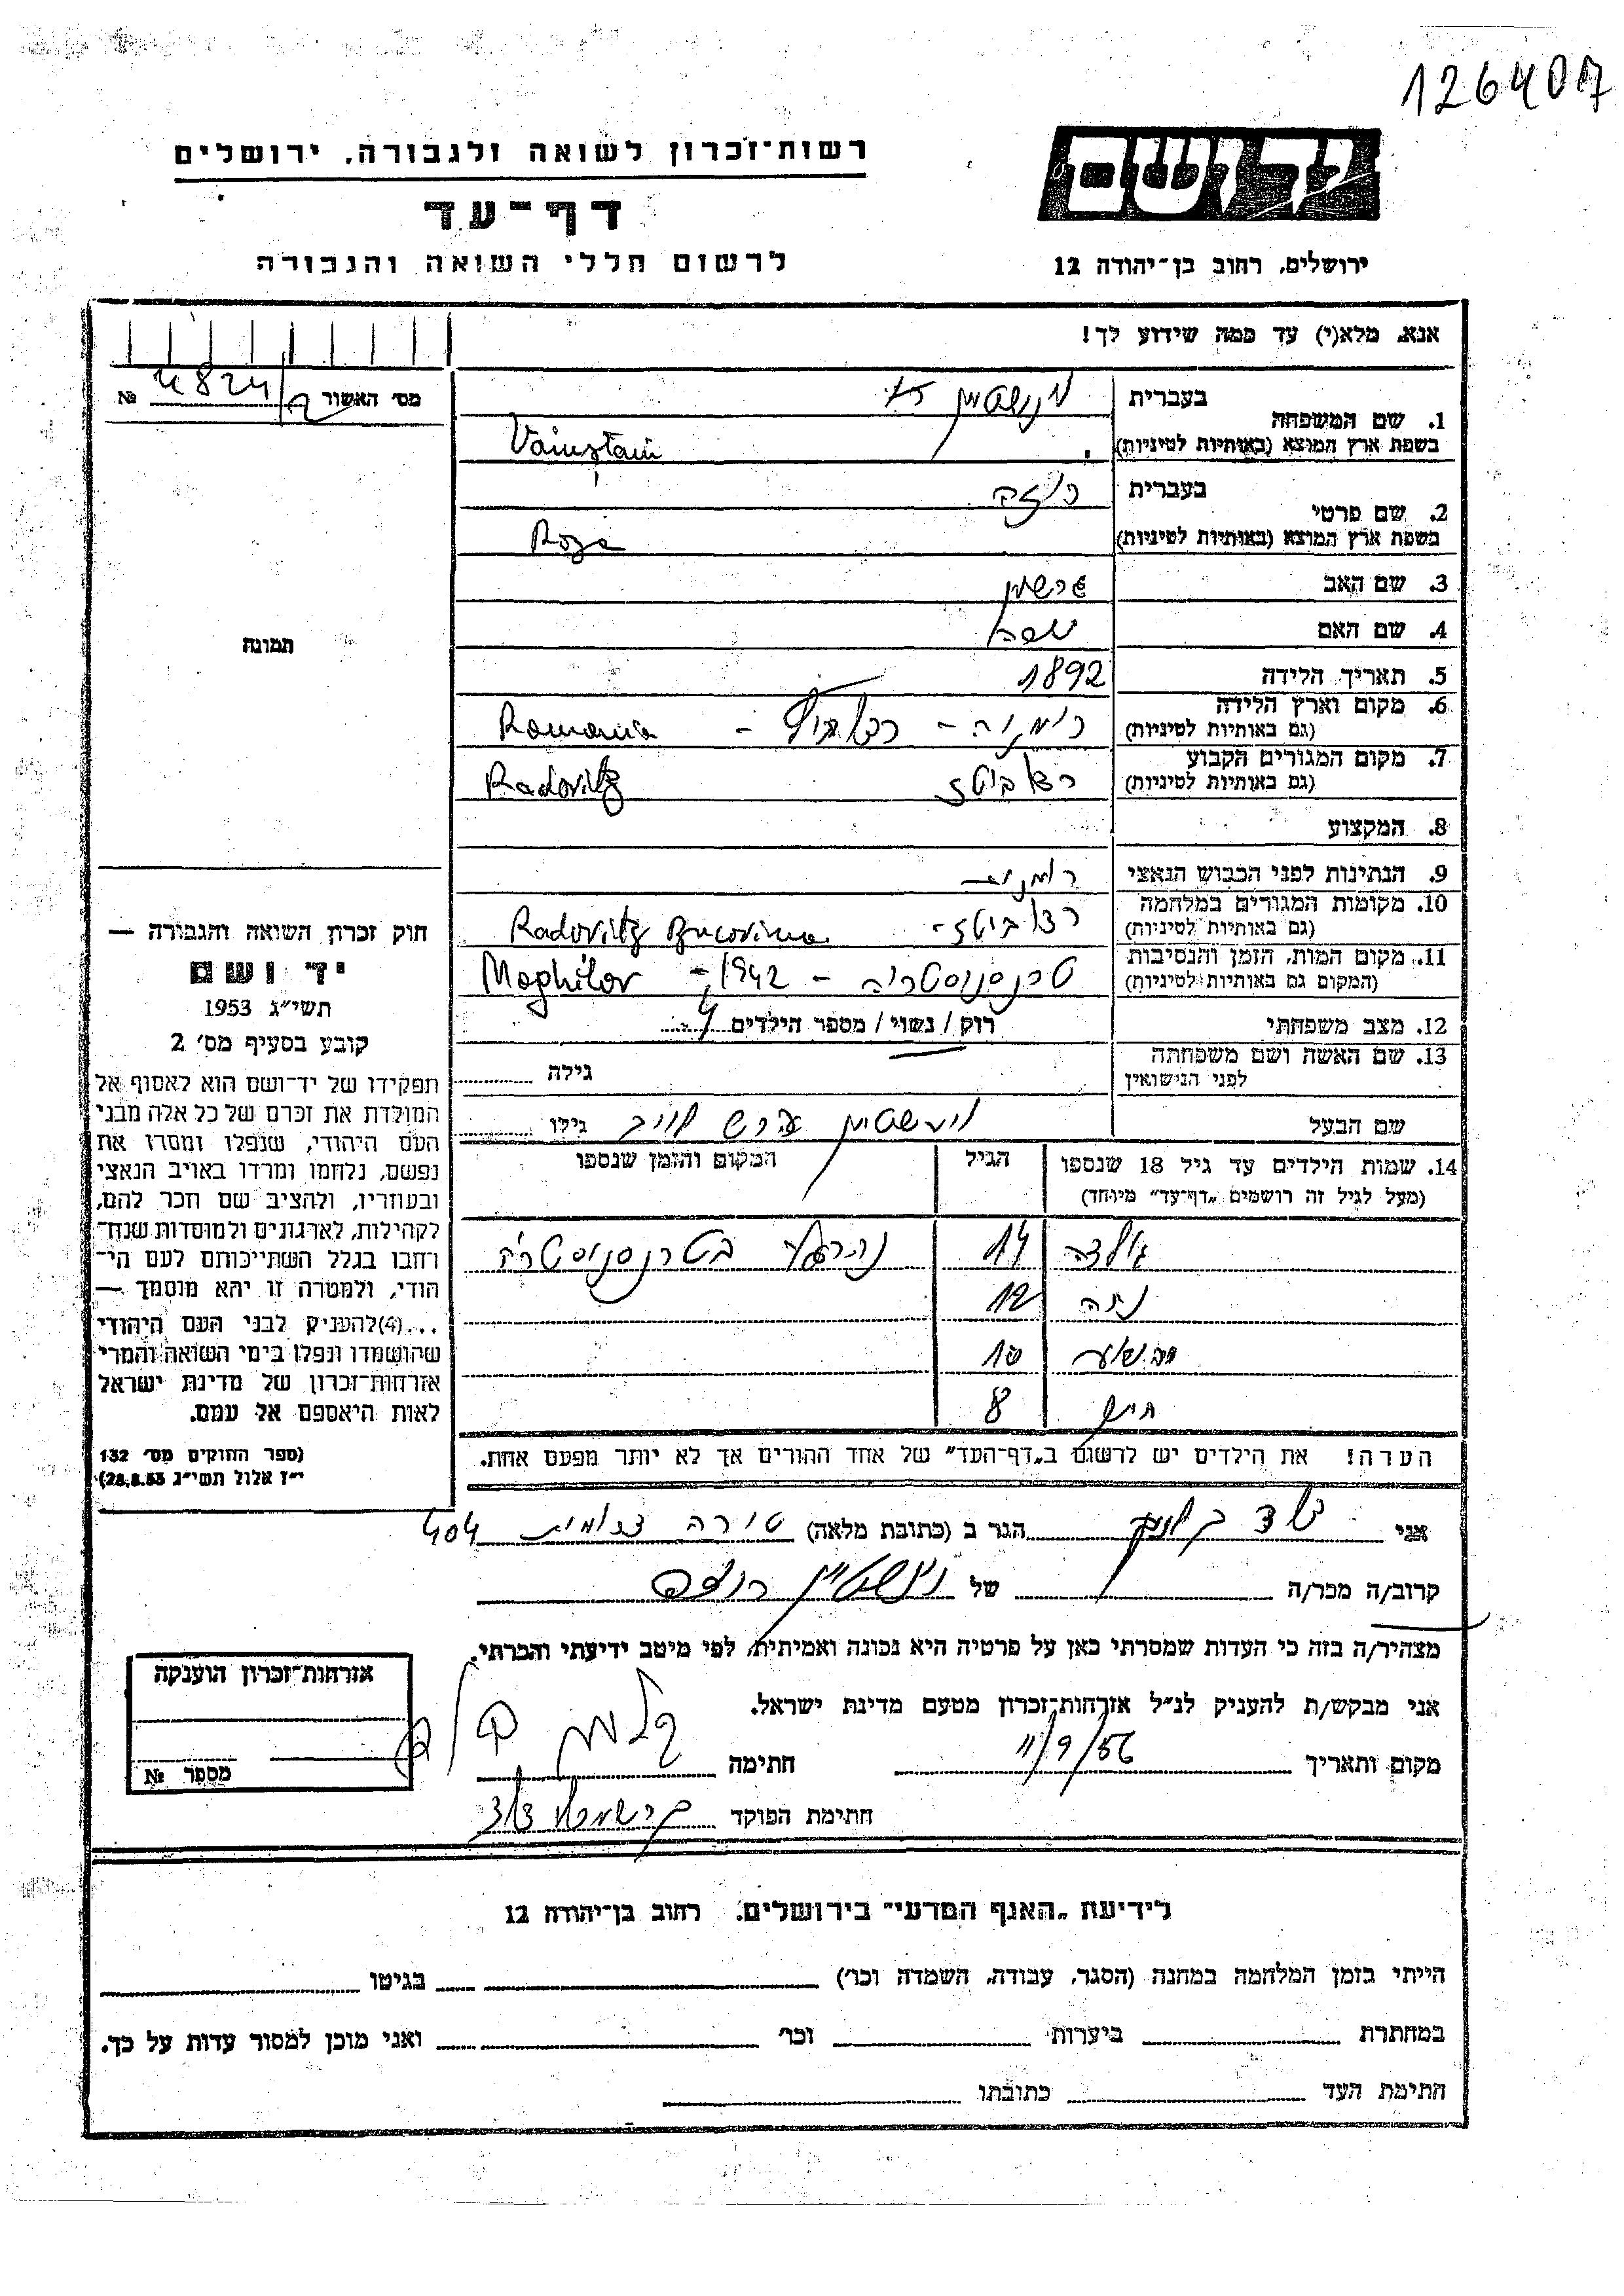 126407
רשות־זכרון לשואה ולגבורה, ירושלים
יד ושם
דף־עד
לרשום חללי השואה והגבורה
ירושלים, רחוב בן־יהודה 12
אנא, מלא(י) עד כמה שידוע לך!
מס׳ האשור № 4824/
1. שם המשפחה
בעברית
בשפת ארץ המוצא (באותיות לטיניות) Vainștain
2. שם פרטי
בעברית רוזה
בשפת ארץ המוצא (באותיות לטיניות) Roza
3. שם האב גרשון
4. שם האם
5. תאריך הלידה 1892
6. מקום וארץ הלידה רומניה - - Romania
(גם באותיות לטיניות)
7. מקום המגורים הקבוע רדוביטז Radovitz
(גם באותיות לטיניות)
8. המקצוע
9. הנתינות לפני הכבוש הנאצי רומנית
10. מקומות המגורים במלחמה רדוביטז - Radovitz Bucovina
(גם באותיות לטיניות)
11. מקום המות, הזמן והנסיבות טרנסניסטריה - 1942 - Moghilov
(המקום גם באותיות לטיניות)
12. מצב משפחתי רוק / נשוי / מספר הילדים 4
13. שם האשה ושם משפחתה גילה
לפני הנישואין
שם הבעל ויינשטיין הרש לייב גילו
14. שמות הילדים עד גיל 18 שנספו הגיל המקום והזמן שנספו
(מעל לגיל זה רושמים „דף־עד” מיוחד)
גולדה 14 נהרגו בטרנסניסטריה
נטה 12
יהושע 10
חיים 8
הערה! את הילדים יש לרשום ב„דף־העד” של אחד ההורים אך לא יותר מפעם אחת.
תמונה
חוק זכרון השואה והגבורה —
יד ושם
תשי״ג 1953
קובע בסעיף מס׳ 2
תפקידו של יד־ושם הוא לאסוף אל
המולדת את זכרם של כל אלה מבני
העם היהודי, שנפלו ומסרו את
נפשם, נלחמו ומרדו באויב הנאצי
ובעוזריו, ולהציב שם וזכר להם,
לקהילות, לארגונים ולמוסדות שנח־
רחבו בגלל השתייכותם לעם הי־
הודי, ולמטרה זו יהא מוסמך —
...(4)להעניק לבני העם היהודי
שהושמדו ונפלו בימי השואה והמרי
אזרחות־זכרון של מדינת ישראל
לאות היאספם אל עמם.
(ספר החוקים מס׳ 132
י״ז אלול תשי״ג 28.8.53)
אני הגר ב (כתובת מלאה) טירה 404
קרוב/ה מכר/ה של וינשטיין רוזה
מצהיר/ה בזה כי העדות שמסרתי כאן על פרטיה היא נכונה ואמיתית, לפי מיטב ידיעתי והכרתי.
אני מבקש/ת להעניק לנ״ל אזרחות־זכרון מטעם מדינת ישראל.
מקום ותאריך 11/9/56 חתימה
חתימת הפוקד
אזרחות־זכרון הוענקה
מספר №
לידיעת „האגף המדעי״ בירושלים, רחוב בן־יהודה 12
הייתי בזמן המלחמה במחנה (הסגר, עבודה, השמדה וכו׳) בגיטו
במחתרת ביערות וכו׳ ואני מוכן למסור עדות על כך.
חתימת העד כתובתו